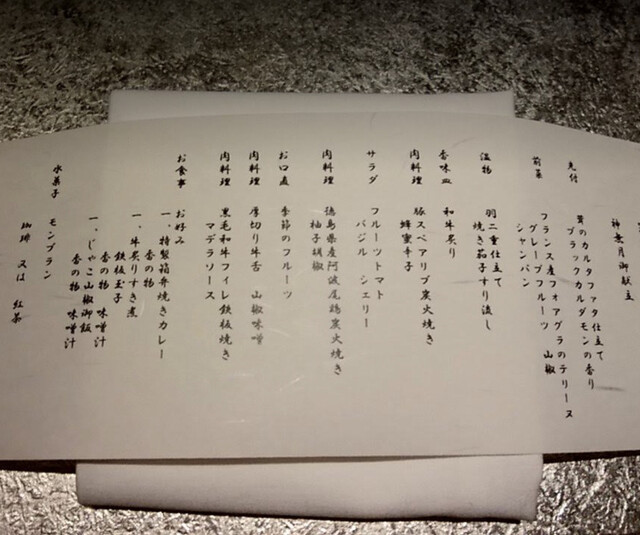 神無月御献立
先付
茸のカルタファタ仕立て
ブラックカルダモンの香り
前菜
フランス産フォアグラのテリーヌ
グレープフルーツ 山椒
シャンパン
温物
羽二重仕立て
焼き茄子すり流し
香味皿
和牛炙り
肉料理
豚スペアリブ炭火焼き
蜂蜜辛子
サラダ
フルーツトマト
バジル シェリー
肉料理
徳島県産阿波尾鶏炭火焼き
柚子胡椒
お口直
季節のフルーツ
肉料理
厚切り牛舌 山椒味噌
肉料理
黒毛和牛フィレ鉄板焼き
マデラソース
お食事
お好み
一、特製箱弁焼きカレー
香の物
一、牛炙りすき煮
鉄板玉子
香の物 味噌汁
一、じゃこ山椒御飯
香の物 味噌汁
水菓子
モンブラン
珈琲 又は 紅茶